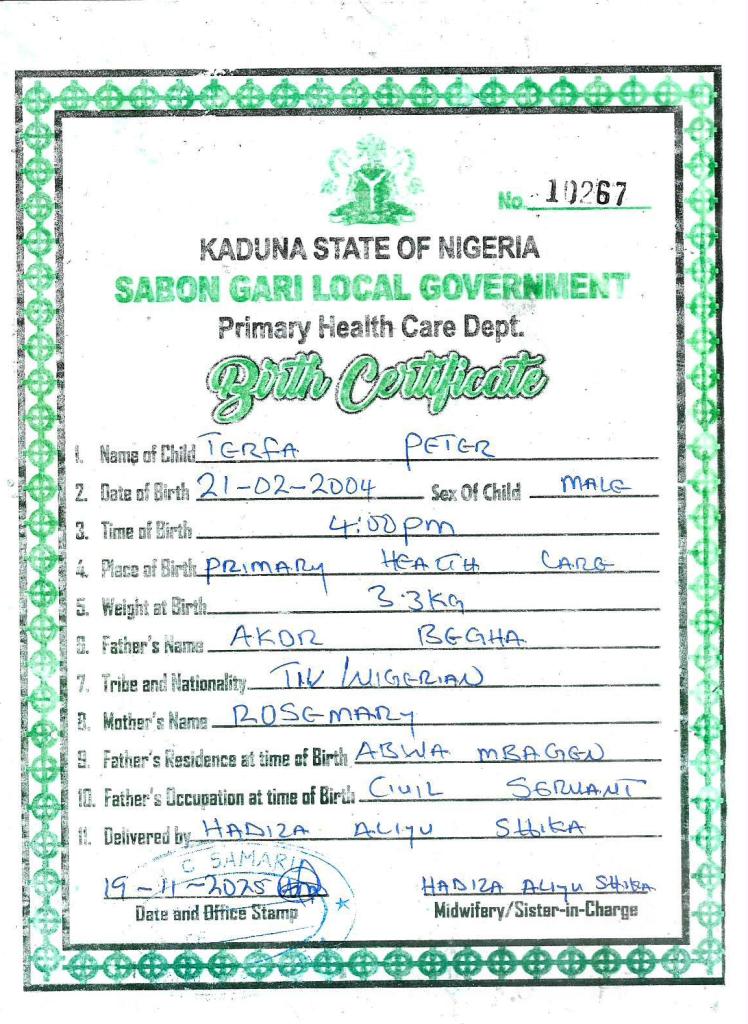 No. 10267
KADUNA STATE OF NIGERIA
SABON GARI LOCAL GOVERNMENT
Primary Health Care Dept.
Birth Certificate
1. Name of Child TERFA PETER
2. Date of Birth 21-02-2004 Sex Of Child MALE
3. Time of Birth 4:00pm
4. Place of Birth PRIMARY HEALTH CARE
5. Weight at Birth 3.3KG
6. Father's Name AKOR BEGHA
7. Tribe and Nationality TIV / NIGERIAN
8. Mother's Name ROSEMARY
9. Father's Residence at time of Birth ABWA MBAGEN
10. Father's Occupation at time of Birth CIVIL SERVANT
11. Delivered by HADIZA ALIYU SHIKA
C SAMARU
19-11-2025 HADIZA ALIYU SHIKA
Date and Office Stamp Midwifery/Sister-in-Charge